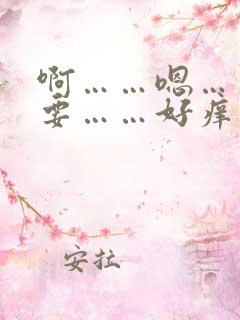 啊……嗯…
要……好痒
安拉